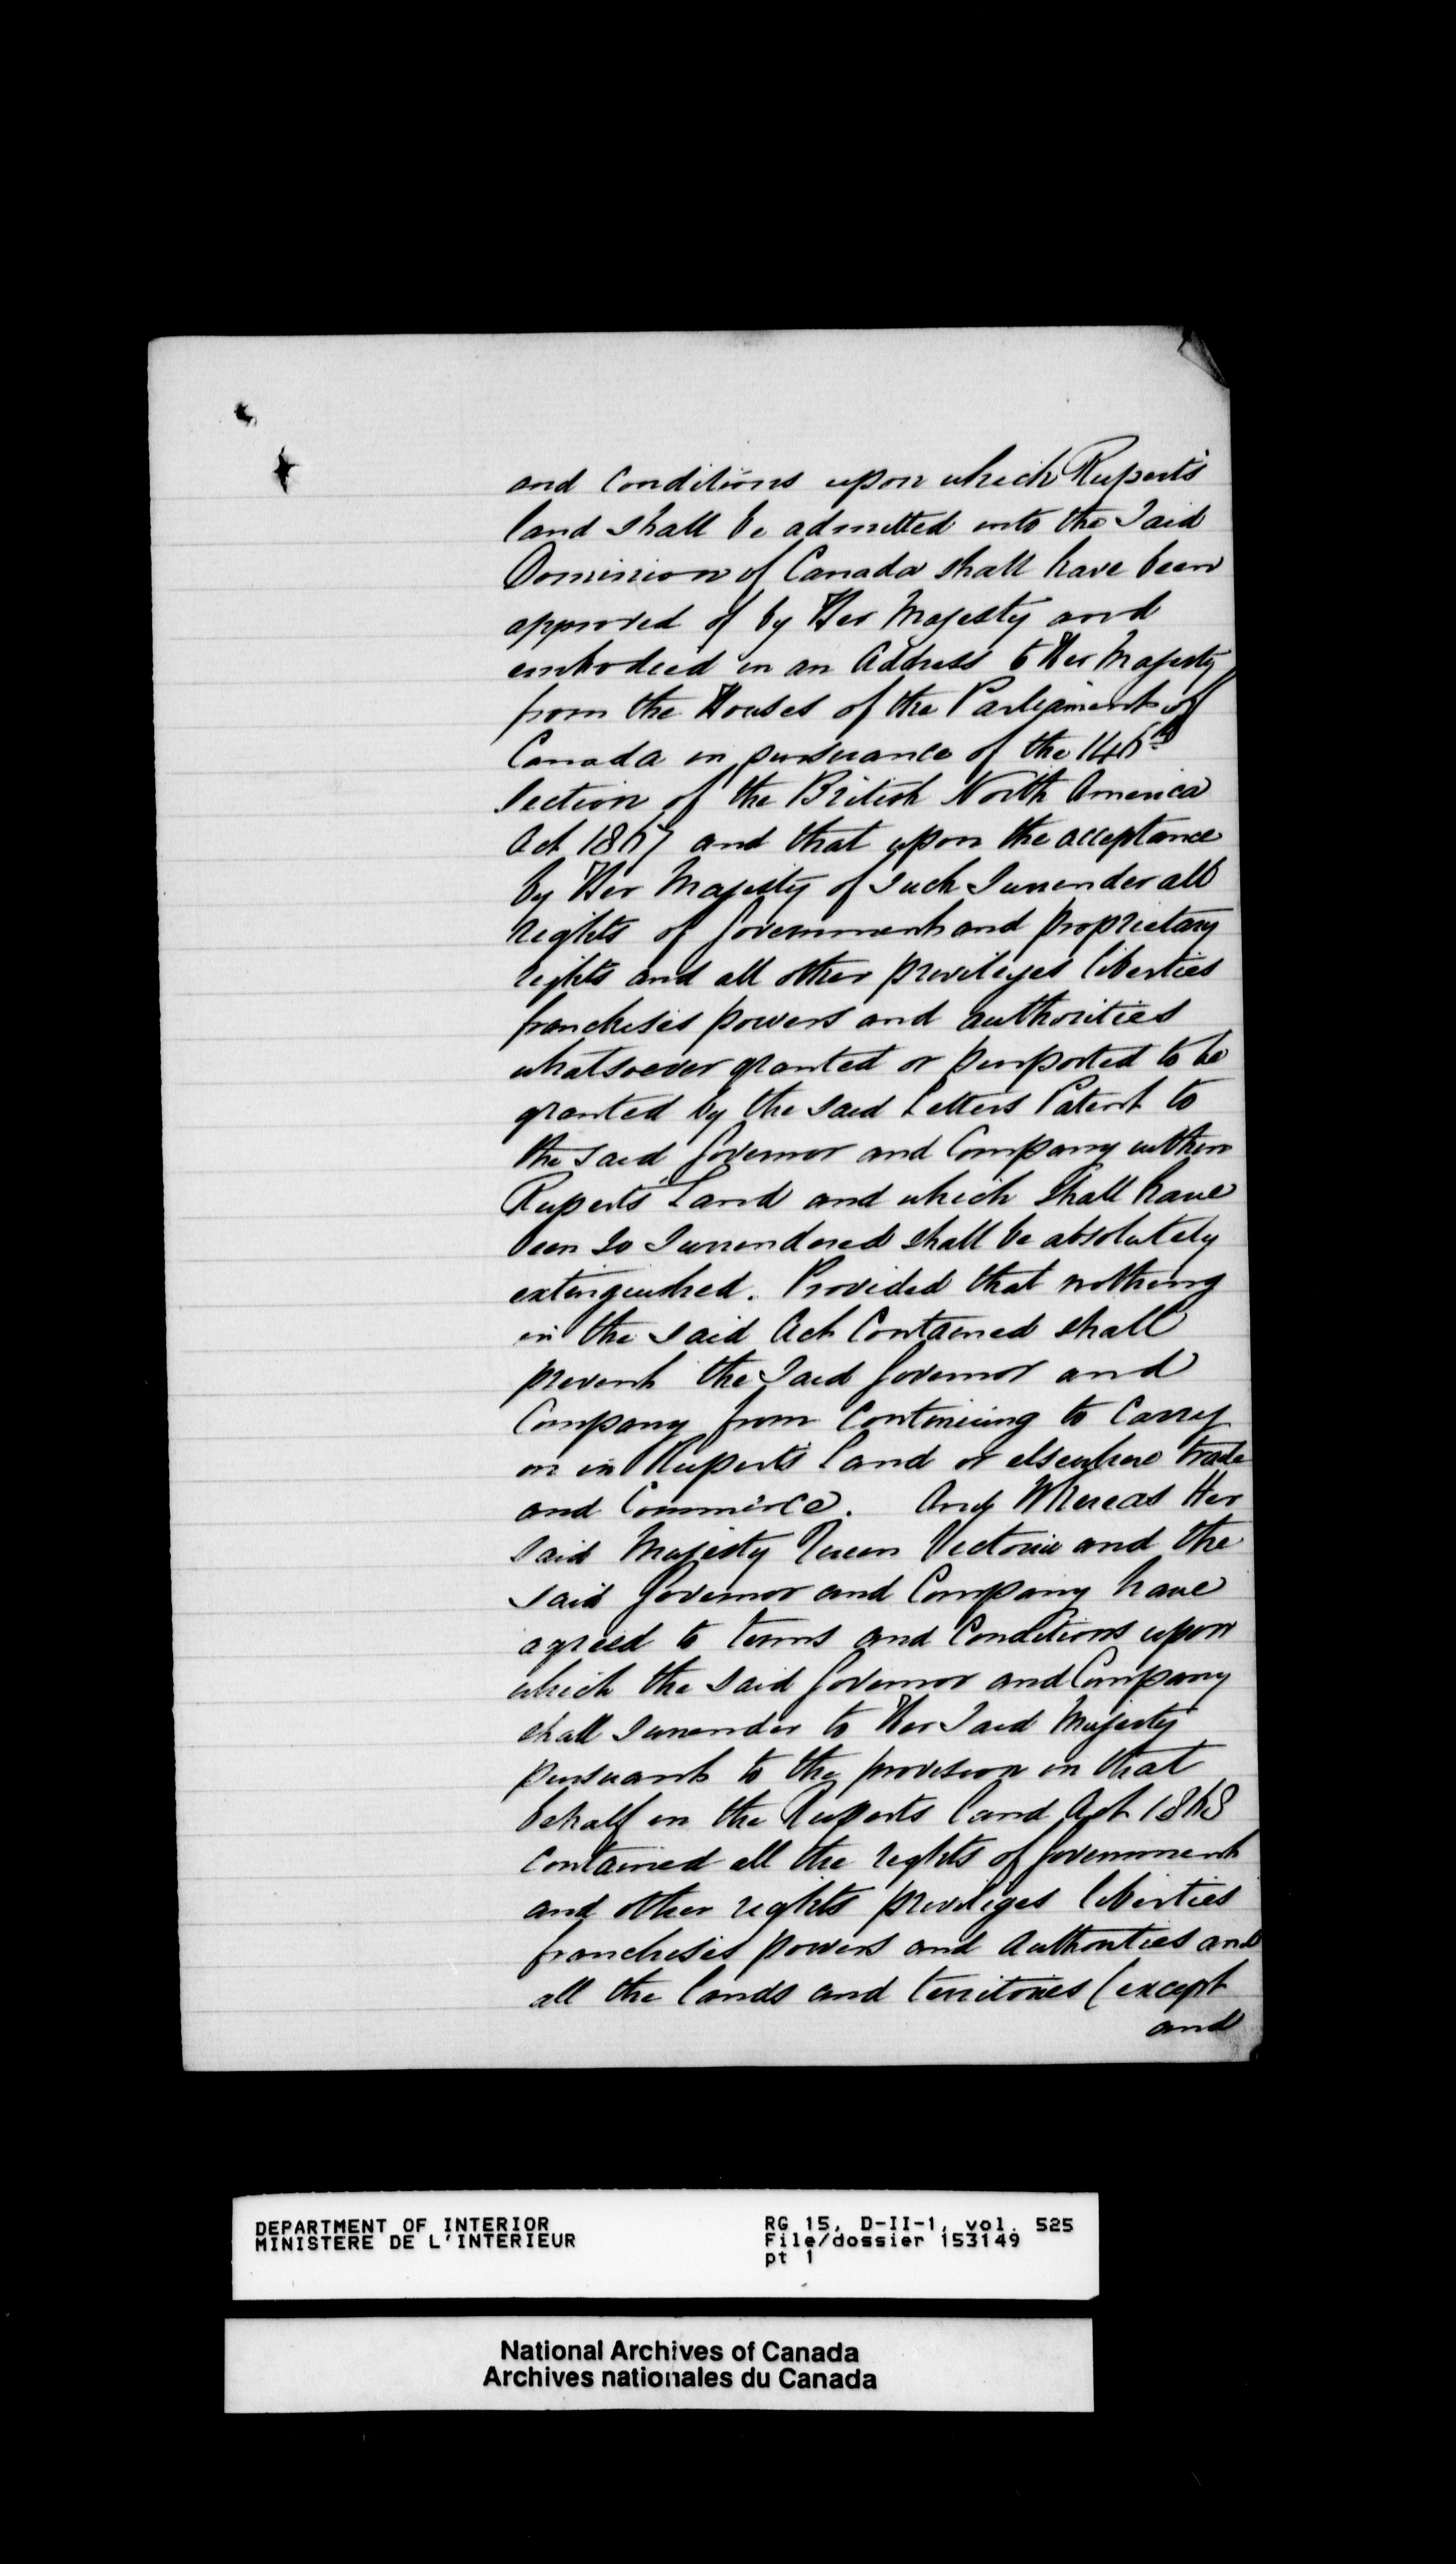 and Conditions upon which Rupert's
land shall be admitted into the Said
Dominion of Canada shall have been
approved of by Her Majesty and
embodied in an Address to Her Majesty
from the Houses of the Parliament of
Canada in pursuance of the 146th
Section of the British North America
Act 1867 and that upon the acceptance
by Her Majesty of Such Surrender all
rights of Government and proprietary
rights and all other privileges liberties
franchises powers and authorities
whatsoever granted or purported to be
granted by the said Letters Patent to
the said Governor and Company within
Rupert's Land and which shall have
been so Surrendered shall be absolutely
extinguished. Provided that nothing
in the said Act Contained shall
prevent the Said Governor and
Company from Continuing to Carry
on in Rupert's Land or elsewhere trade
and Commerce. And Whereas Her
said Majesty Queen Victoria and the
said Governor and Company have
agreed to terms and Conditions upon
which the said Governor and Company
shall Surrender to Her Said Majesty
pursuant to the provision in that
behalf in the Ruperts Land Act 1868
contained all the rights of Government
and other rights privileges liberties
franchises powers and authorities and
all the lands and territories (except
and
DEPARTMENT OF INTERIOR
MINISTERE DE L'INTERIEUR
RG 15, D-II-1, vol. 525
File/dossier 153149
pt 1
National Archives of Canada
Archives nationales du Canada